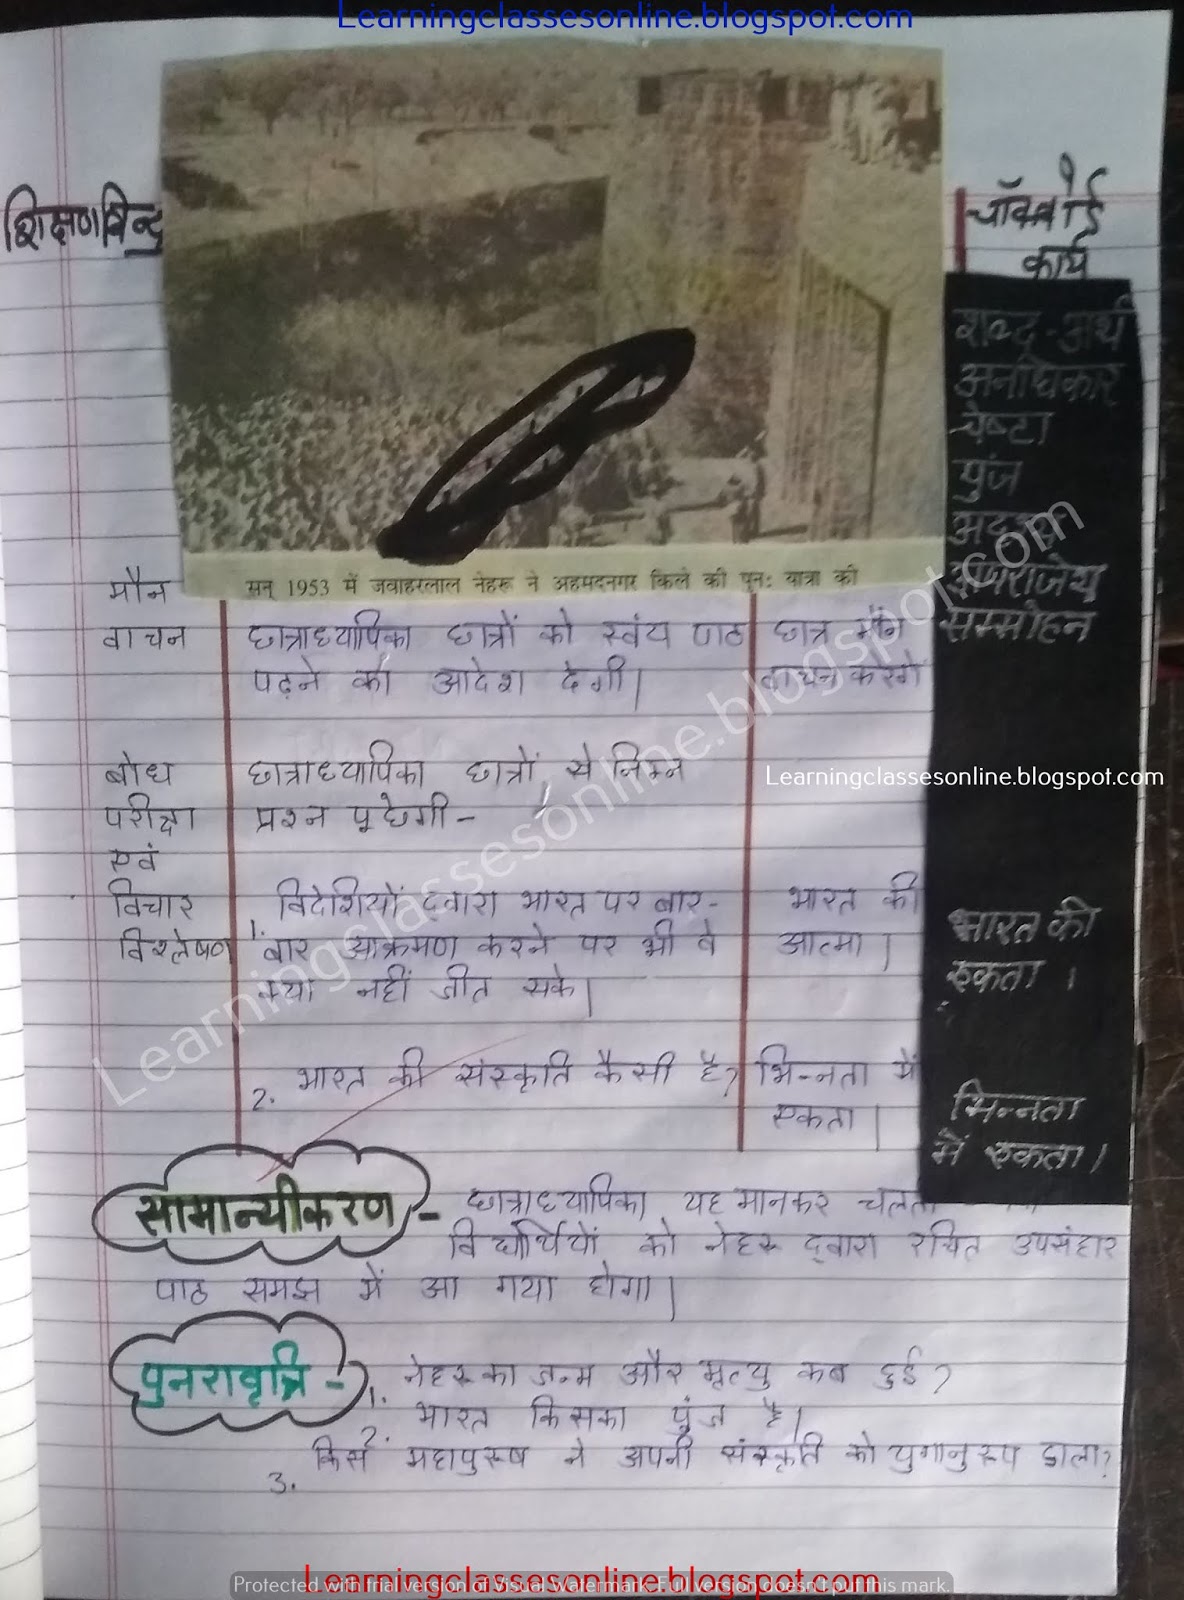 Learningclassesonline.blogspot.com
शिक्षणबिन्दु
चॉकबोर्ड
कार्य
शब्द-अर्थ
अनाधिकार
चेष्टा
पुंज
अदभुत
अपराजेय
सम्मोहन
सन् 1953 में जवाहरलाल नेहरू ने अहमदनगर किले की पुनः यात्रा की
मौन
वाचन छात्राध्यापिका छात्रों को स्वंय पाठ छात्र मौन
पढ़ने का आदेश देगी। वाचन करेंगे
बोध छात्राध्यापिका छात्रों से निम्न
Learningclassesonline.blogspot.com
परीक्षा प्रश्न पूछेगी -
एवं
विचार 1. विदेशियों द्वारा भारत पर बार- भारत की भारत की
विश्लेषण बार आक्रमण करने पर भी वे आत्मा। एकता।
क्या नहीं जीत सके।
2. भारत की संस्कृति कैसी है? भिन्नता में भिन्नता
एकता। में एकता।
सामान्यीकरण - छात्राध्यापिका यह मानकर
विद्यार्थियों को नेहरू द्वारा रचित उपसंहार
पाठ समझ में आ गया होगा।
पुनरावृत्ति - 1. नेहरू का जन्म और मृत्यु कब हुई?
2. भारत किसका पुंज है।
3. किस महापुरूष ने अपनी संस्कृति को युगानुरूप ढाला?
Learningclassesonline.blogspot.com
Protected with trial version of Visual Watermark. Full version doesn't put this mark.
Learningclassesonline.blogspot.com